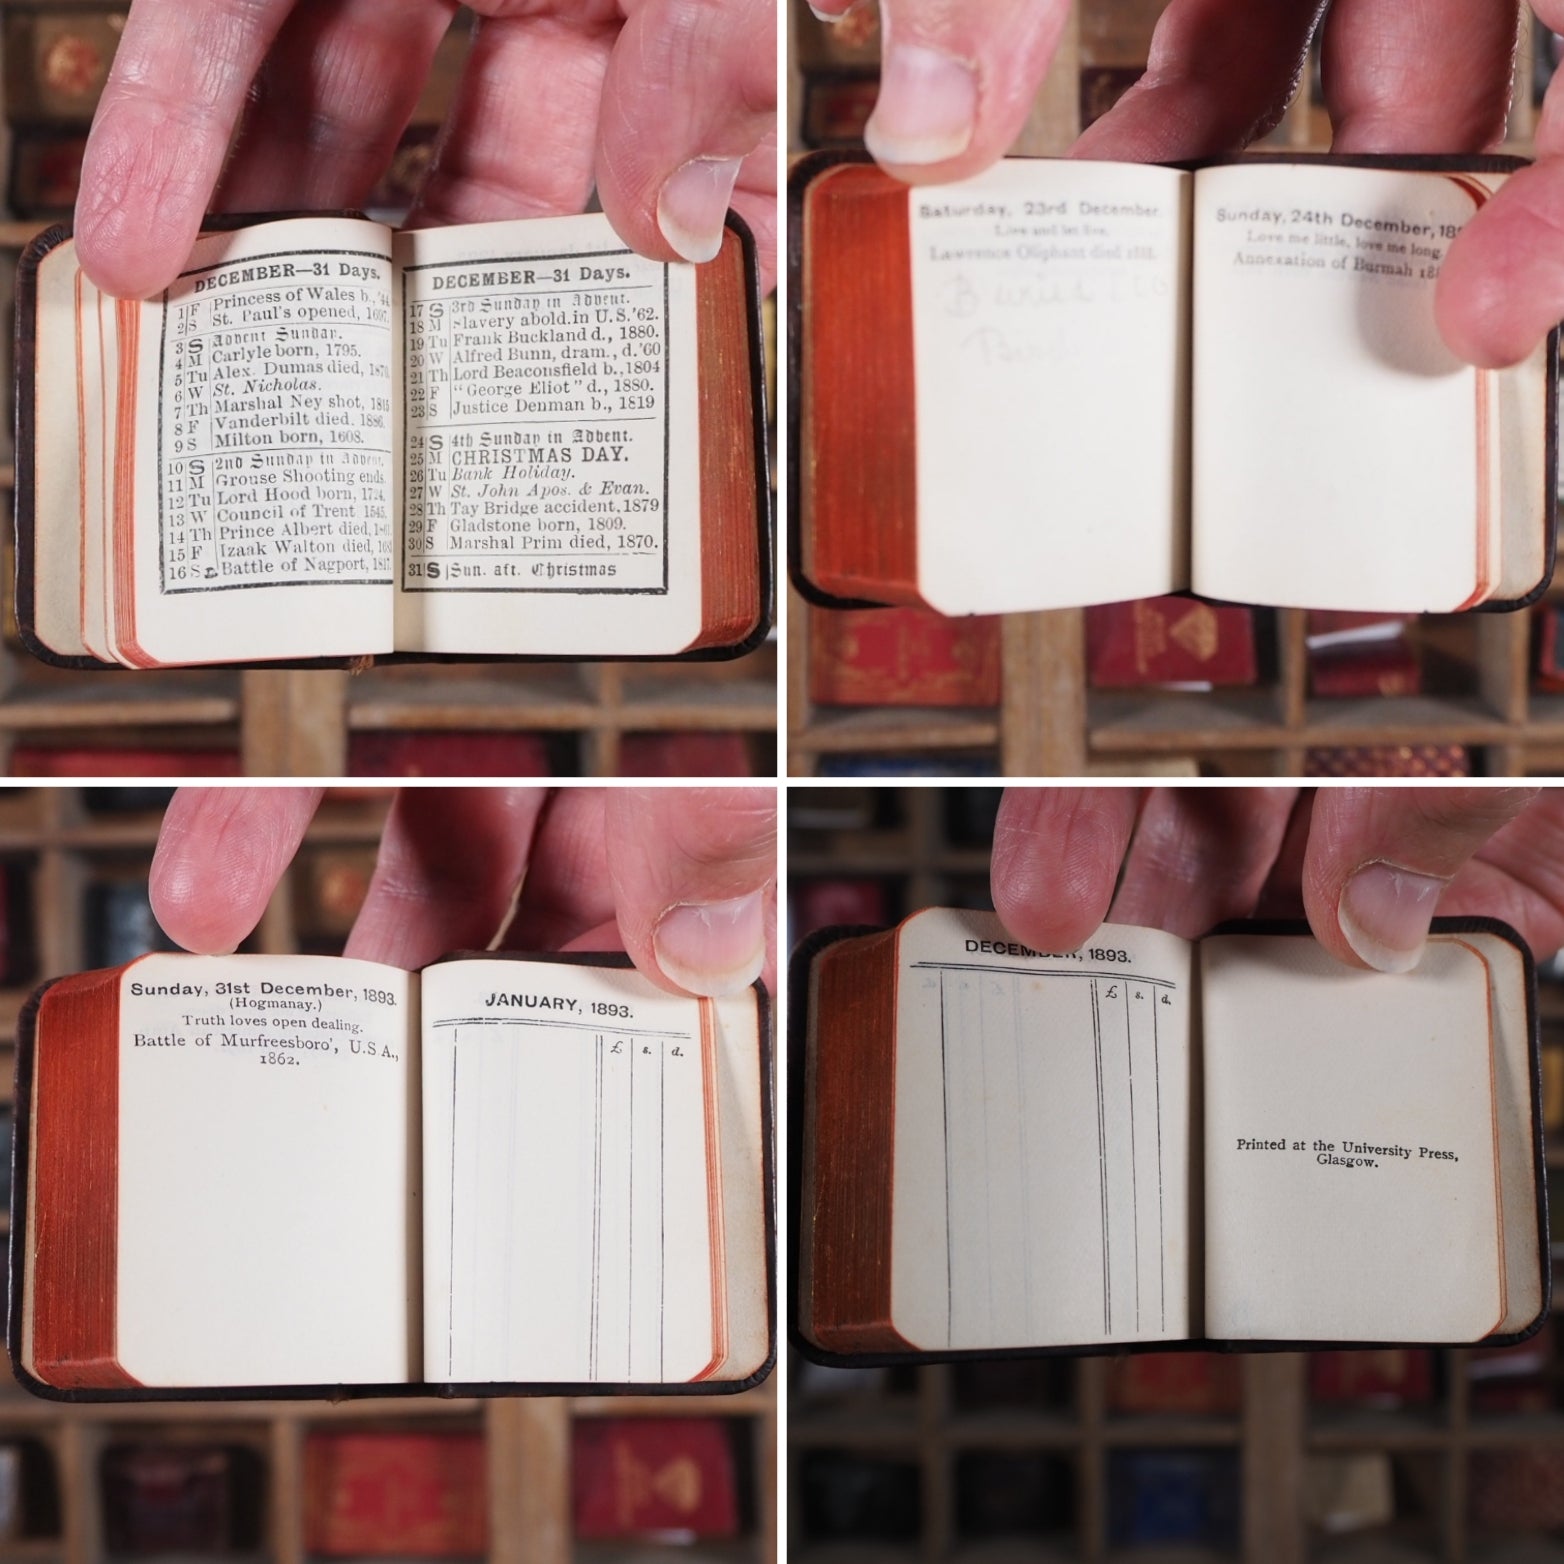 DECEMBER—31 Days.
1 F Princess of Wales b., '44
2 S St. Paul's opened, 1697.
3 S Advent Sunday.
4 M Carlyle born, 1795.
5 Tu Alex. Dumas died, 1870
6 W St. Nicholas.
7 Th Marshal Ney shot, 1815
8 F Vanderbilt died. 1886.
9 S Milton born, 1608.
10 S 2nd Sunday in Advent.
11 M Grouse Shooting ends.
12 Tu Lord Hood born, 1724.
13 W Council of Trent 1545.
14 Th Prince Albert died,
15 F Izaak Walton died,
16 S Battle of Nagport, 1817.
DECEMBER—31 Days.
17 S 3rd Sunday in Advent.
18 M Slavery abold.in U.S.'62.
19 Tu Frank Buckland d., 1880.
20 W Alfred Bunn, dram., d.'60
21 Th Lord Beaconsfield b., 1804
22 F "George Eliot" d., 1880.
23 S Justice Denman b., 1819
24 S 4th Sunday in Advent.
25 M CHRISTMAS DAY.
26 Tu Bank Holiday.
27 W St. John Apos. & Evan.
28 Th Tay Bridge accident, 1879
29 F Gladstone born, 1809.
30 S Marshal Prim died, 1870.
31 S Sun. aft. Christmas
Saturday, 23rd December.
Live and let live.
Lawrence Oliphant died 1888.
Sunday, 24th December, 18
Love me little, love me long.
Annexation of Burmah 18
Sunday, 31st December, 1893.
(Hogmanay.)
Truth loves open dealing.
Battle of Murfreesboro', U.S A.,
1862.
JANUARY, 1893.
£ s. d.
DECEMBER, 1893.
£ s. d.
Printed at the University Press,
Glasgow.